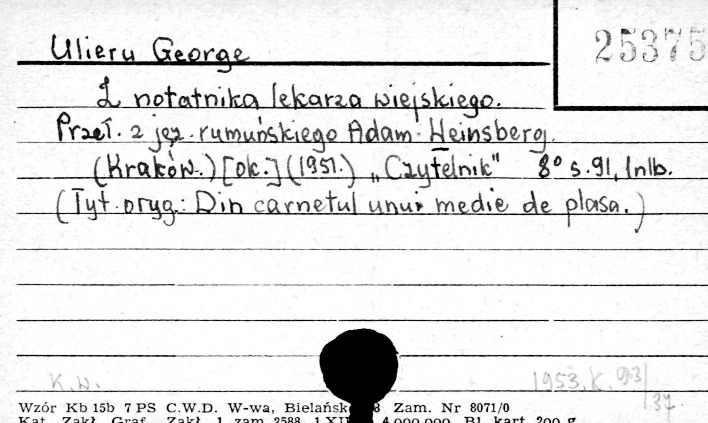 Ulieru George
25375
Z notatnika lekarza wiejskiego.
Przeł. z jęz. rumuńskiego Adam Weinsberg.
(Kraków.) [ok.] (1951.) „Czytelnik" 8° s. 91, 1nlb.
(Tyt. oryg.: Din carnetul unui medic de plasa.)
K.W.
1953. K. 93/
37.
Wzór Kb 15b 7 PS C.W.D. W-wa, Bielańsk 8 Zam. Nr 8071/0
Kat. Zakł. Graf. Zakł. 1 zam 2588 1 XII 4.000.000 Bl. kart. 200 g